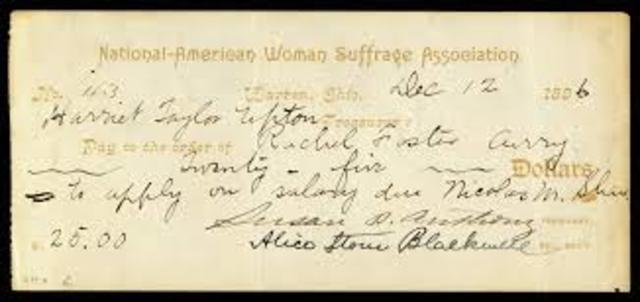 National-American Woman Suffrage Association
No. 163 Warren, Ohio, Dec 12 1896
Harriet Taylor Upton Treasurer:
Pay to the order of Rachel Foster Avery
Twenty-five Dollars
to apply on salary due Nicolas M. Shaw
Susan B. Anthony President.
$ 25.00 Alice Stone Blackwell